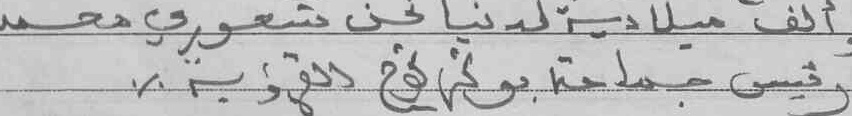 ألف ميلادية لدينا نحن شعوري محمد
رئيس جماعة القروية ./.